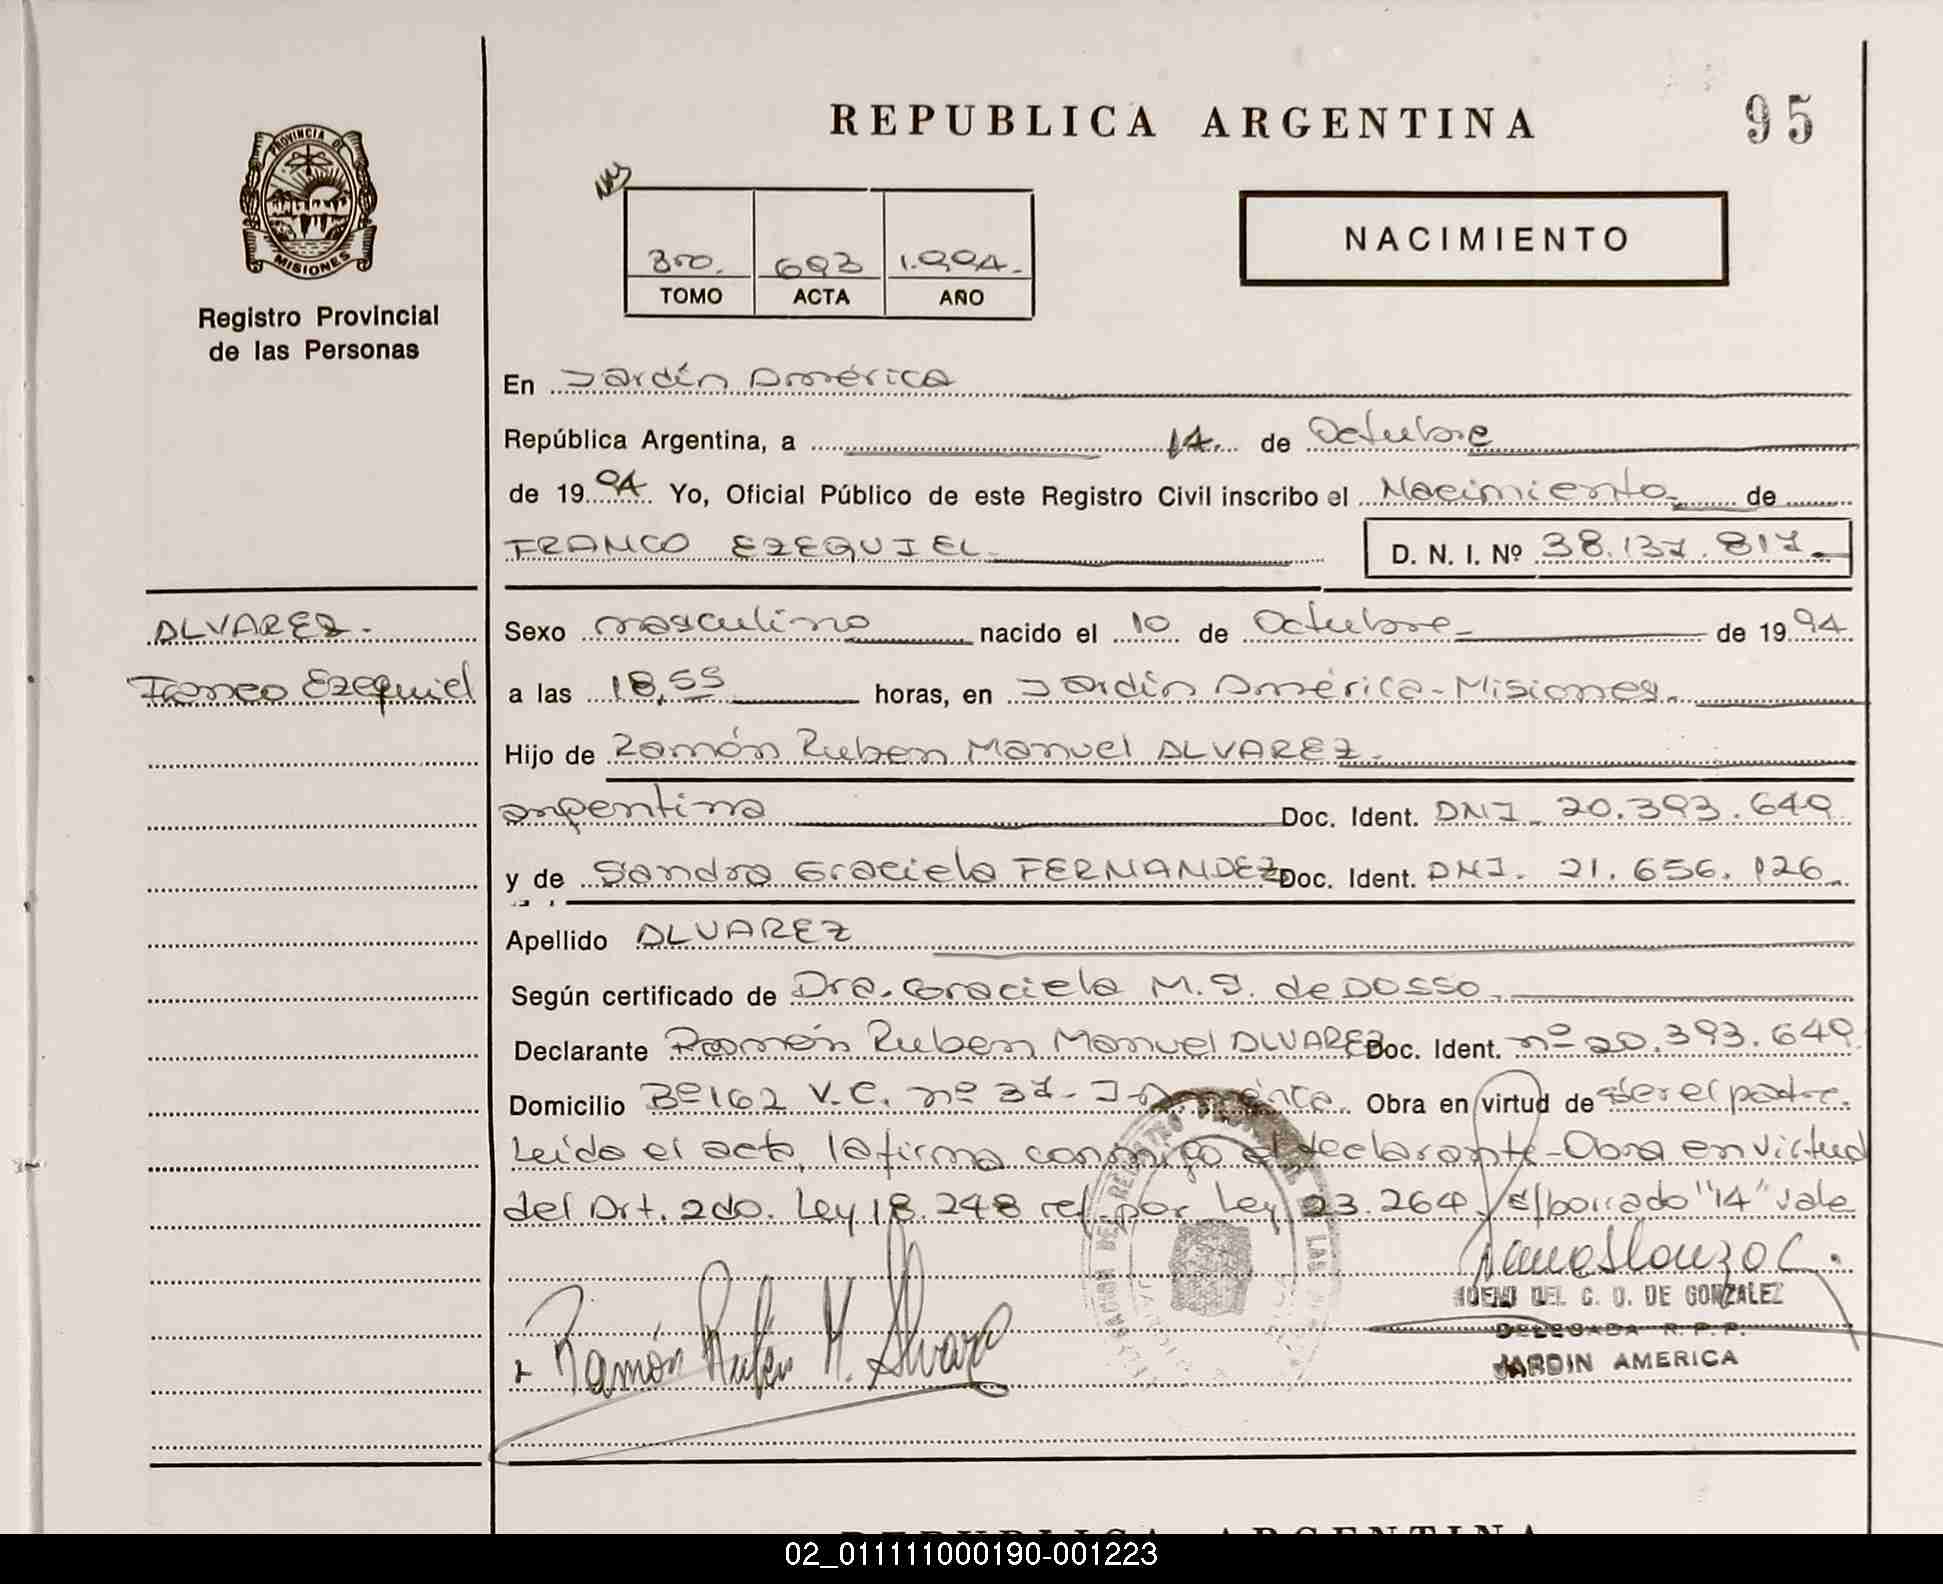 REPUBLICA ARGENTINA
95
PROVINCIA DE
MISIONES
Registro Provincial
de las Personas
3ro. 693 1.994.
TOMO ACTA AÑO
NACIMIENTO
En Jardín América
República Argentina, a 14. de Octubre
de 1994. Yo, Oficial Público de este Registro Civil inscribo el Nacimiento de
FRANCO EZEQUIEL D. N. I. Nº 38.137.817.
ALVAREZ.
Franco Ezequiel
Sexo masculino nacido el 10 de Octubre de 1994
a las 18,55 horas, en Jardín América-Misiones.
Hijo de Ramón Ruben Manuel ALVAREZ.
argentina Doc. Ident. DNI. 20.393.649
y de Sandra Graciela FERNANDEZ Doc. Ident. DNI. 21.656.126
Apellido ALVAREZ
Según certificado de Dra. Graciela M. S. de DOSSO.
Declarante Ramón Ruben Manuel ALVAREZ Doc. Ident. nº 20.393.649
Domicilio Bº 162 V.C. nº 37- J. América. Obra en virtud de ser el padre.
Leída el acta, la firma conmigo el declarante-Obra en virtud
del Art. 2do. Ley 18.248 ref. por Ley 23.264. s/borrado "14" vale
Ramón Rubén M. Alvarez
DEL C. D. DE GONZALEZ
DELEGADA R. P. P.
JARDIN AMERICA
REPUBLICA ARGENTINA
02_011111000190-001223